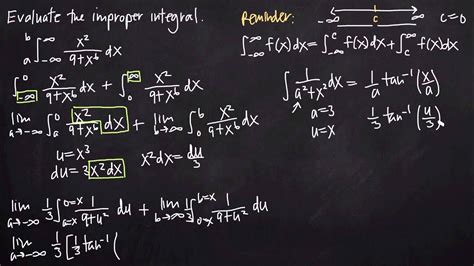 Evaluate the improper integral.
a b ∫_{-∞}^{∞} x²/(9+x⁶) dx
∫_{-∞}^{0} x²/(9+x⁶) dx + ∫_{0}^{∞} x²/(9+x⁶) dx
lim_{a→-∞} ∫_{a}^{0} x²/(9+x⁶) dx + lim_{b→∞} ∫_{0}^{b} x²/(9+x⁶) dx
u = x³
du = 3x²dx
x²dx = du/3
lim_{a→-∞} 1/3 ∫_{a=x}^{0=x} 1/(9+u²) du + lim_{b→∞} 1/3 ∫_{0=x}^{b=x} 1/(9+u²) du
lim_{a→-∞} 1/3 [1/3 tan⁻¹(
Reminder:
-∞ c ∞ c=0
∫_{-∞}^{∞} f(x)dx = ∫_{-∞}^{c} f(x)dx + ∫_{c}^{∞} f(x)dx
∫ 1/(a²+x²) dx = 1/a tan⁻¹(x/a)
a=3
u=x
1/3 tan⁻¹(u/3)